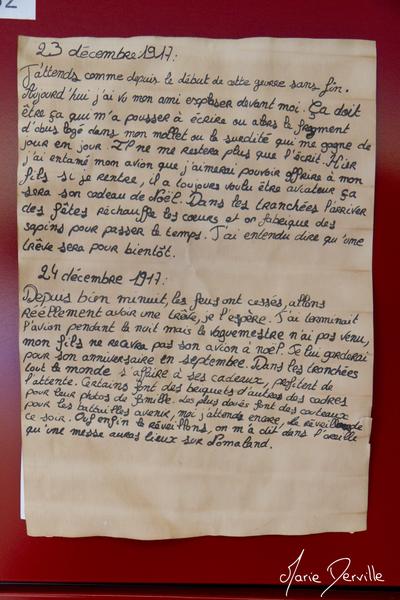 23 décembre 1917:
J'attends comme depuis le début de cette guerre sans fin.
Aujourd'hui j'ai vu mon ami exploser devant moi. Ça doit
être ça qui m'a pousser à écrire ou alors le fragment
d'obus logé dans mon mollet ou la surdité qui me gagne de
jour en jour. Il ne me restera plus que l'écrit. Hier
j'ai entamé mon avion que j'aimerai pouvoir offrire à mon
fils si je rentre, il a toujours voulu être aviateur ça
sera son cadeau de Noël. Dans les tranchées l'arriver
des fêtes réchauffe les cœurs et on fabrique des
sapins pour passer le temps. J'ai entendu dire qu'une
trêve sera pour bientôt.
24 décembre 1917:
Depuis bien minuit, les feus ont cessés, allons
réellement avoir une trêve, je l'espère. J'ai terminait
l'avion pendant la nuit mais le vaguemestre n'ai pas venu,
mon fils ne recevra pas son avion à noël. Je lui garderai
pour son anniversaire en septembre. Dans les tranchées
tout le monde s'affaire à ses cadeaux, profitent de
l'attente. Certains font des briquets d'autres des cadres
pour leur photos de famille. Les plus doués font des couteaux
pour les battailles avenir, moi j'attends encore, le réveillon
ce soir. Ouf enfin le réveillons, on m'a dit dans l'oreille
qu'une messe auras lieux sur Nomaland.
Marie Derville